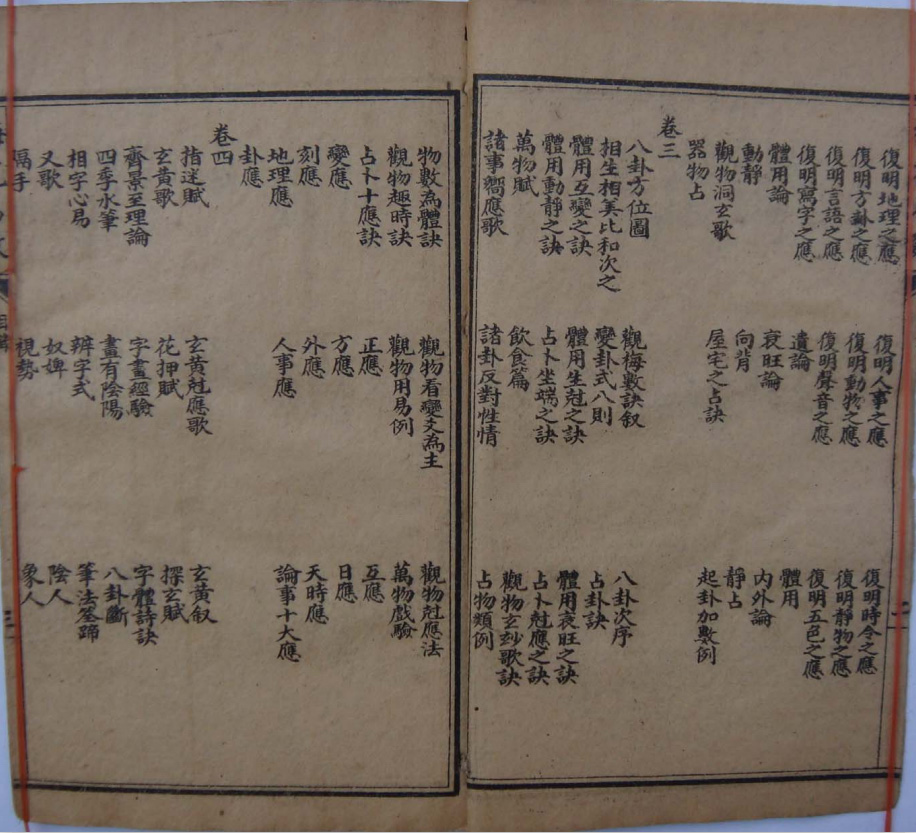 復明地理之應 復明人事之應 復明時令之應
復明方卦之應 復明動物之應 復明靜物之應
復明言語之應 復明聲音之應 復明五色之應
復明寫字之應 遺論 體用
體用論 衰旺論 內外論
動靜 向背 靜占
觀物洞玄歌 屋宅之占訣 起卦加數例
器物占
卷三
八卦方位圖 觀梅數訣叙 八卦次序
相生相美比和次之 變卦式八則 占卦訣
體用互變之訣 體用生尅之訣 體用衰旺之訣
體用動靜之訣 占卜坐端之訣 占卜尅應之訣
萬物賦 飲食篇 觀物玄玅歌訣
諸事響應歌 諸卦反對性情 占物類例
物數為體訣 觀物看變爻為主 觀物尅應法
觀物趣時訣 觀物用易例 萬物戲驗
占卜十應訣 正應 互應
變應 方應 日應
刻應 外應 天時應
地理應 人事應 論事十大應
卦應
卷四
指迷賦 玄黃尅應歌 玄黃叙
玄黃歌 花押賦 探玄賦
齊景至理論 字畫經驗 字體詩訣
四季水筆 畫有陰陽 八卦斷
相字心易 辨字式 筆法筌蹄
又歌 奴婢 陰人
隔手 視勢 象人